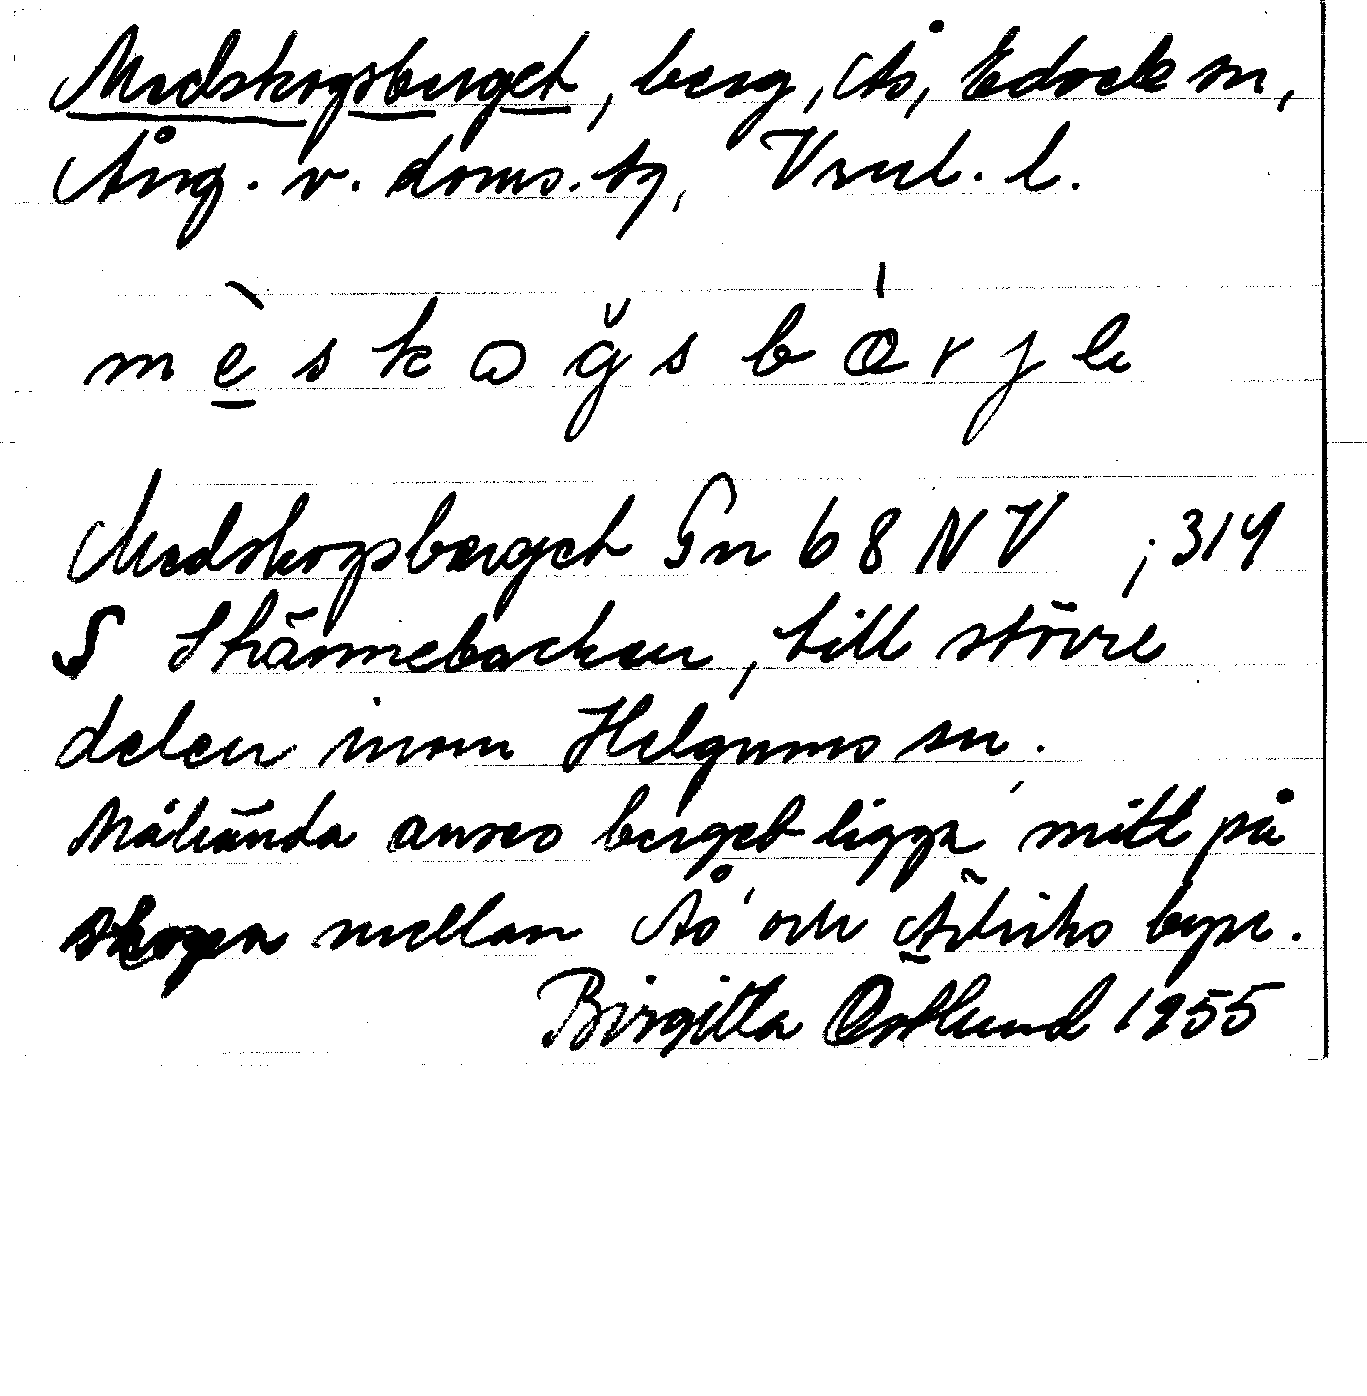 Medskogsberget, berg, Ås, Ed ock sn,
Ång. v. doms.tg, Vnl. l.
mèskogsbærje
Medskogsberget Gn 68 NV ; 314
S Skännebacken, till större
delen inom Helgums sn.
Måhända anses berget ligga mitt på
skogen mellan Ås och byar.
Birgitta Östlund 1955